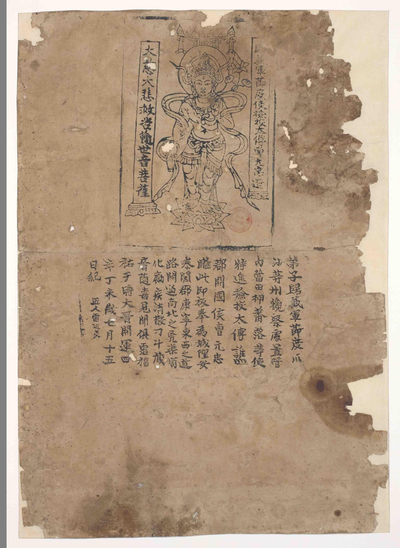 義軍節度使檢校太傅曹元忠造
大慈大悲救苦觀世音菩薩
弟子歸義軍節度瓜
沙等州觀察處置管
內營田押蕃落等使
特進檢校太傅譙
郡開國侯曹元忠
雕此印板奉為城隍安
泰闔郡康寧東西之道
路開通南北之兇渠順
化癘疾消散刁斗藏
音隨喜見聞俱霑福
祐于時大晉開運四
年丁未歲七月十五
日記 匠人雷延美